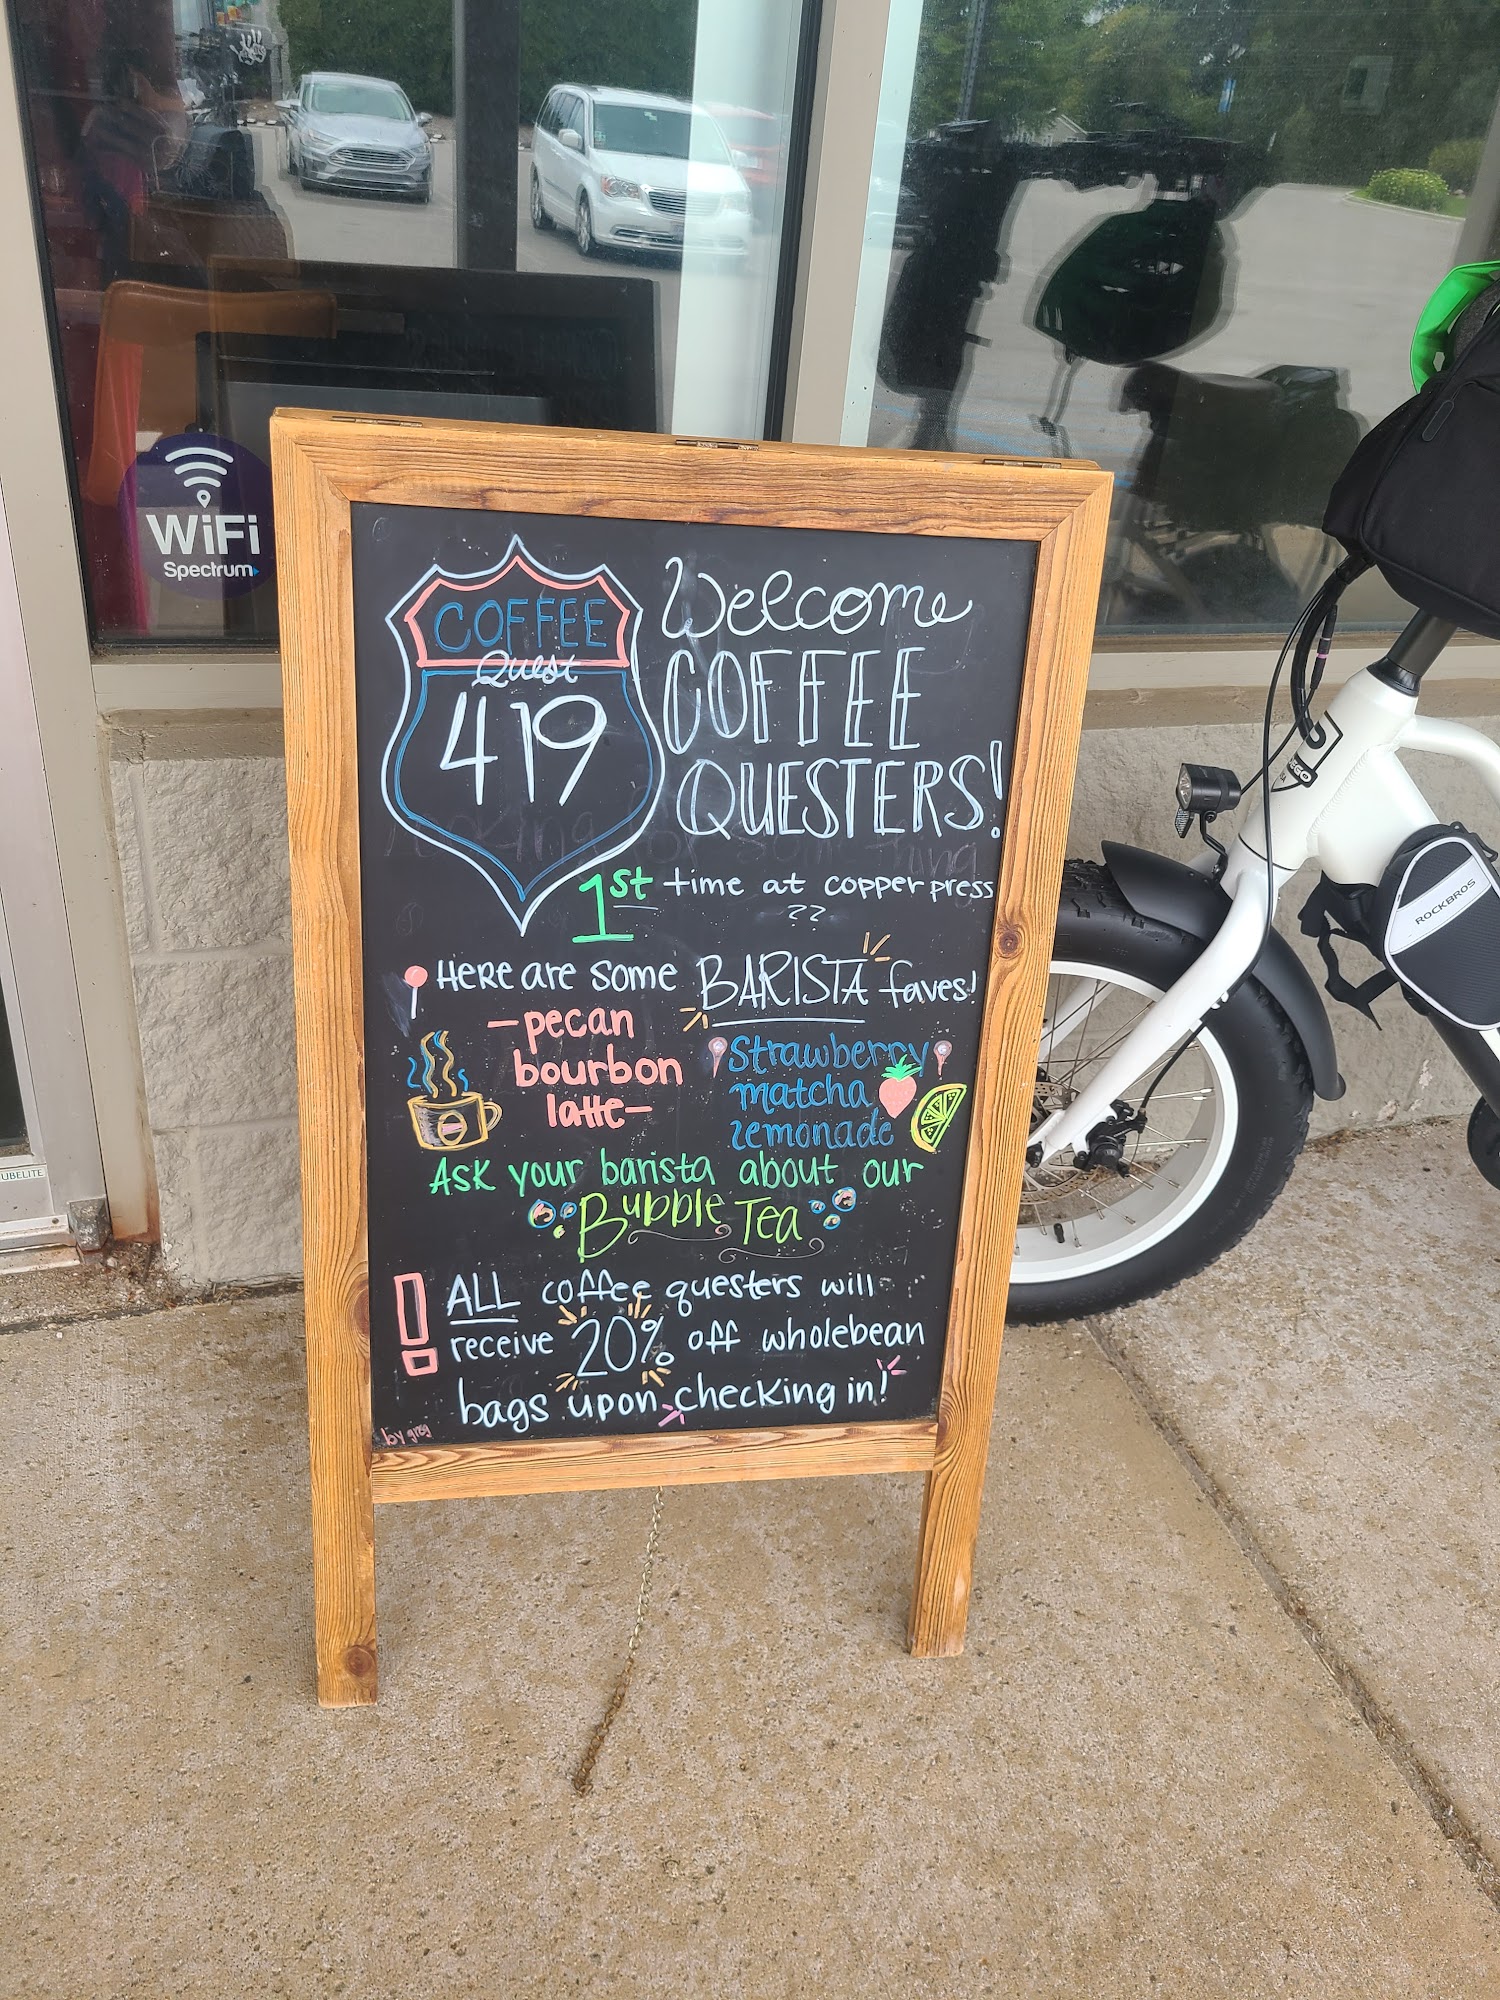 WiFi
Spectrum
COFFEE
Quest
419
Welcome
COFFEE
QUESTERS!
1st time at copper press
??
Here are some BARISTA faves!
-pecan
bourbon
latte-
Strawberry
matcha
lemonade
Ask your barista about our
Bubble Tea
! ALL coffee questers will
receive 20% off wholebean
bags upon checking in!
by greg
ROCKBROS
UBELITE